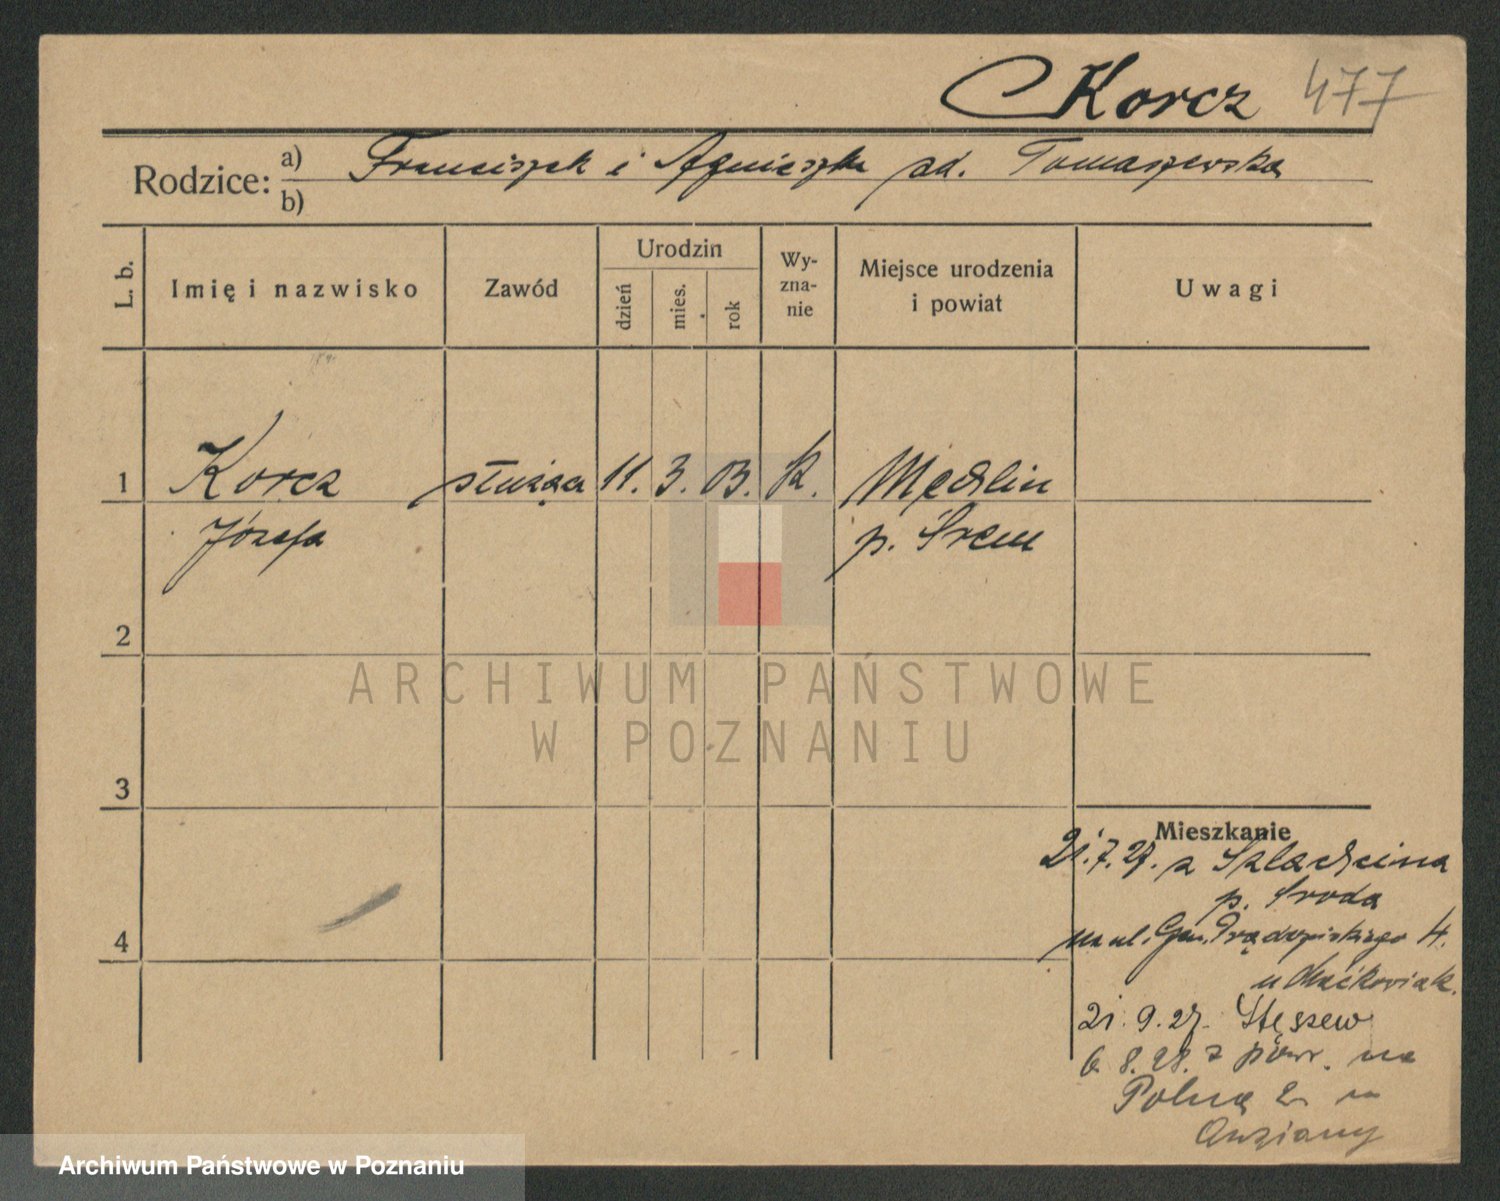 Korcz 477
Rodzice: a) Franciszek i Agnieszka zd. Tomaszewska
b)
L. b. Imię i nazwisko Zawód Urodzin dzień mies. rok Wyznanie Miejsce urodzenia i powiat Uwagi
1 Korcz służąca 11. 3. 03. k. Mechlin
Józefa p. Śrem
2
3
4
Mieszkanie
21.7.27. z Szlachcina
p. Środa
na ul. Gen. Prądzyńskiego 4.
u Maćkowiak.
21.9.27. Stęszew
6 8.28. z powr. na
Polną 2
ARCHIWUM PAŃSTWOWE
W POZNANIU
Archiwum Państwowe w Poznaniu